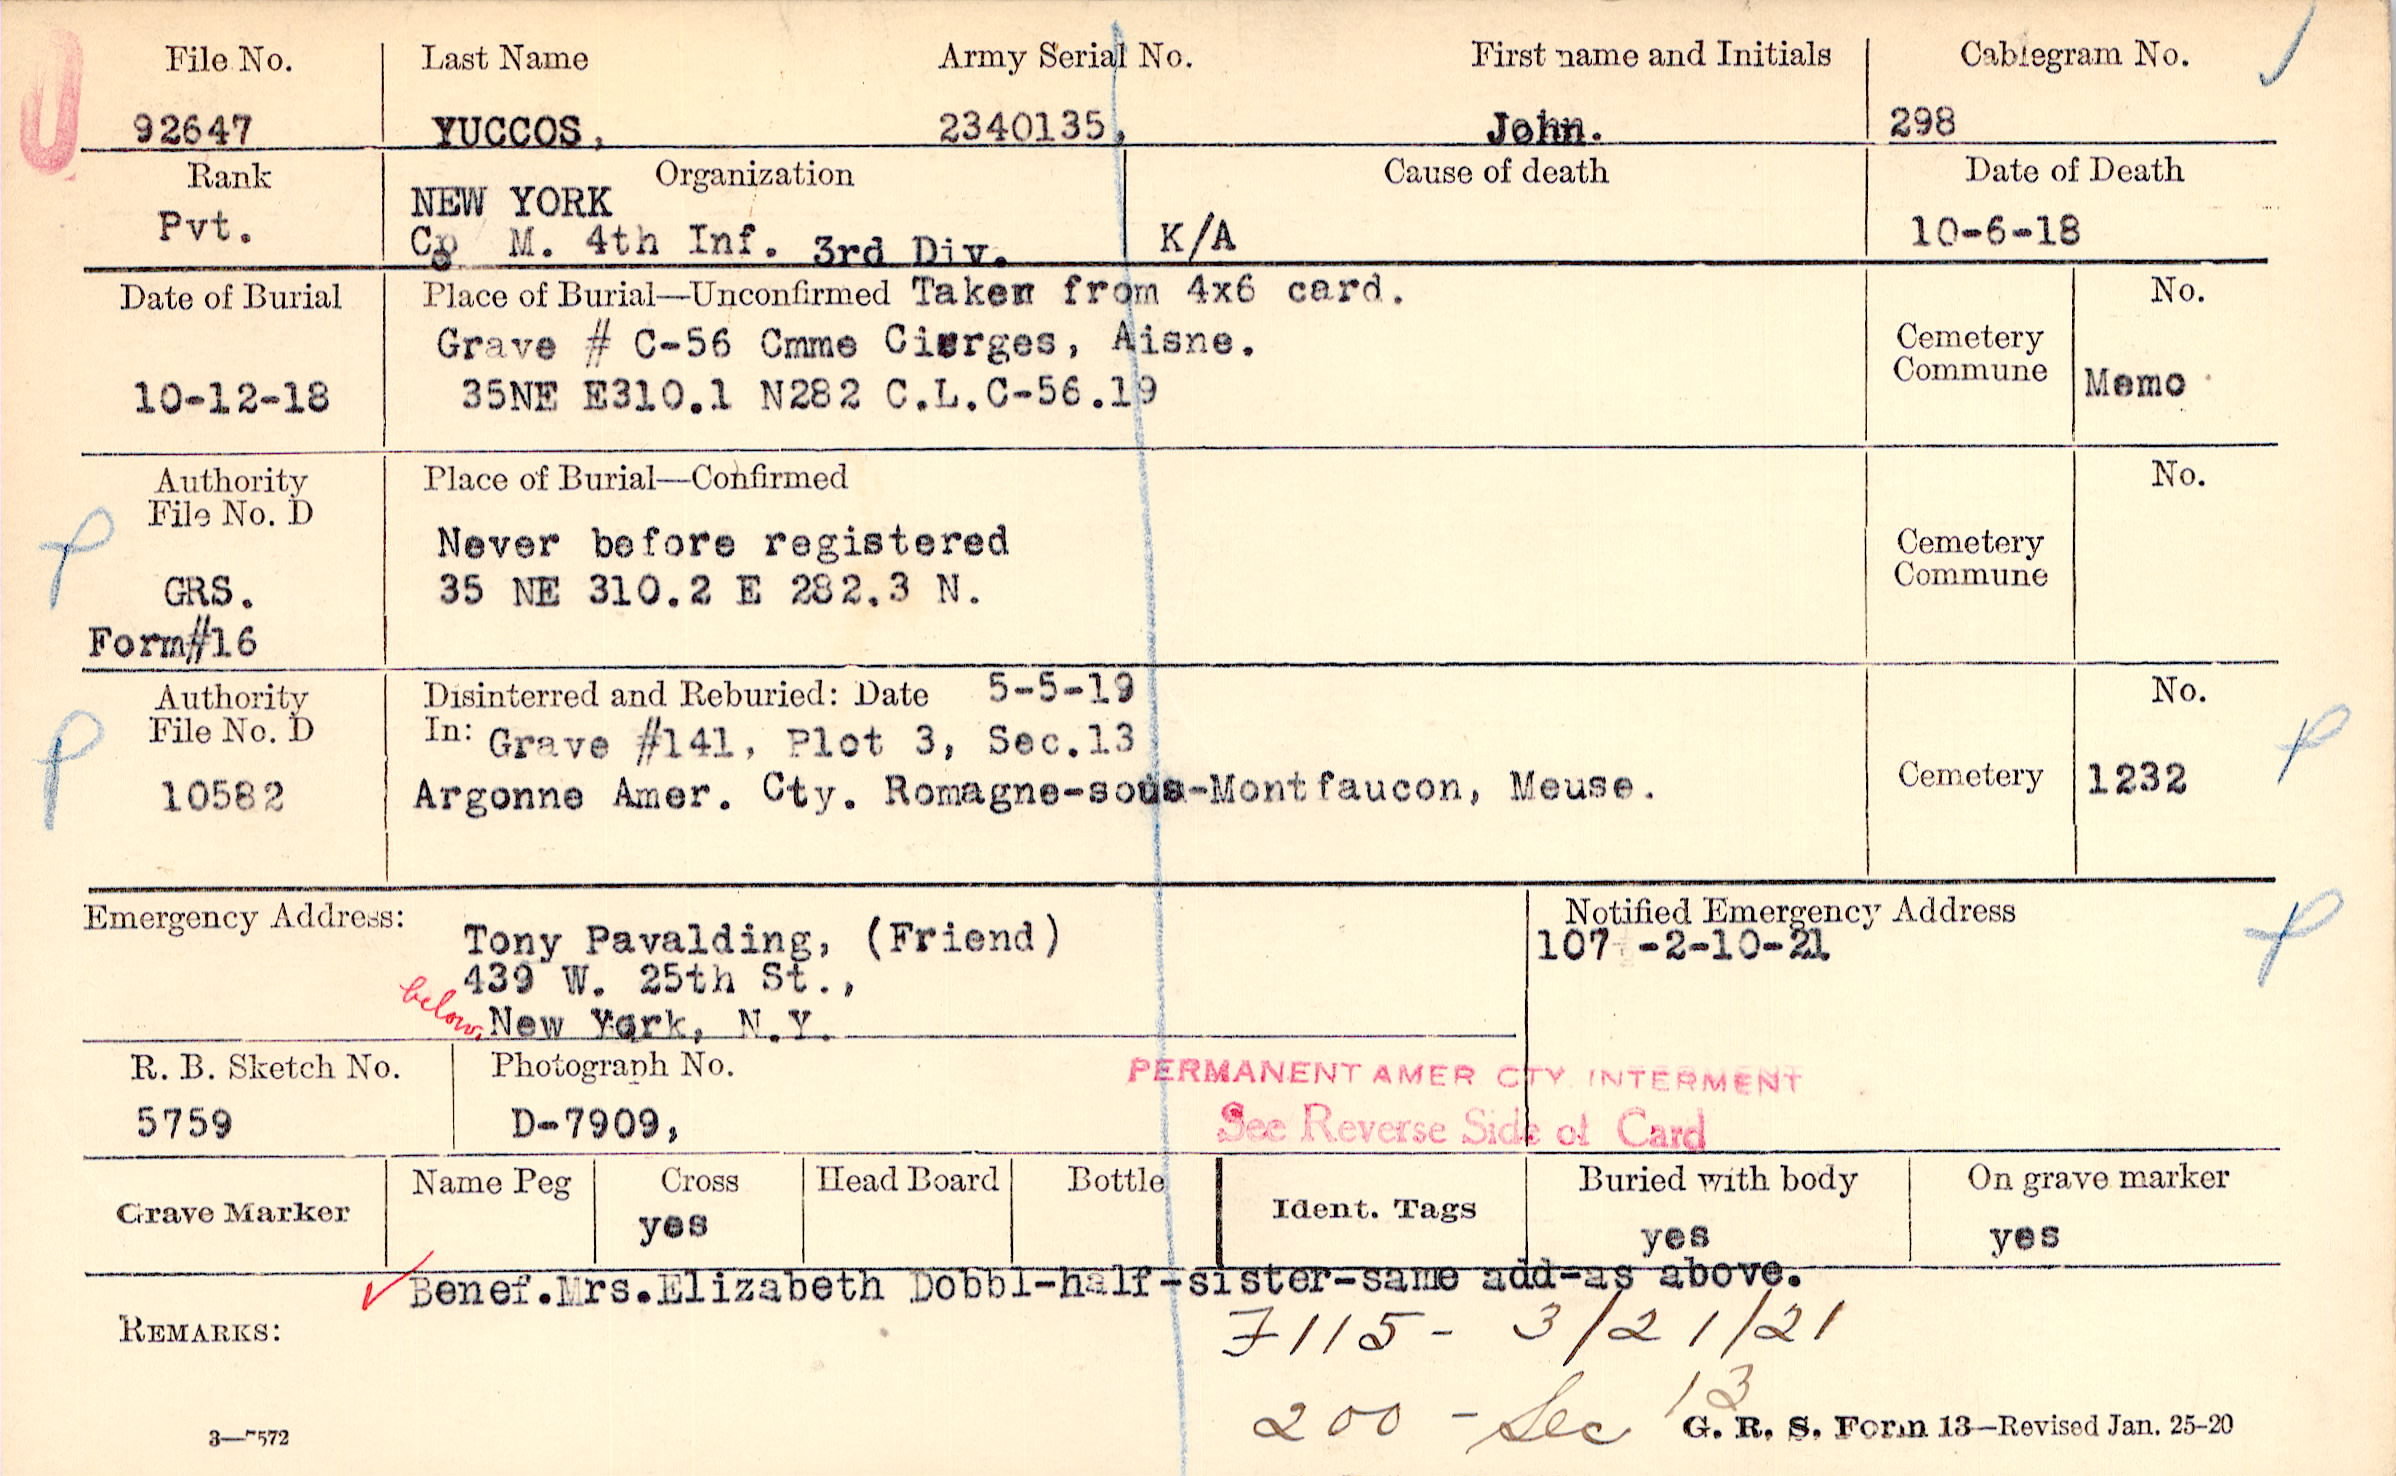 File No. Last Name Army Serial No. First name and Initials Cablegram No.
92647 YUCCOS, 2340135, John. 298
Rank Organization Cause of death Date of Death
Pvt. NEW YORK K/A 10-6-18
Co M. 4th Inf. 3rd Div.
Date of Burial Place of Burial—Unconfirmed Taken from 4x6 card. No.
Grave # C-56 Cmme Cierges, Aisne. Cemetery Commune Memo
10-12-18 35NE E310.1 N282 C.L.C-56.19
Authority File No. D Place of Burial—Confirmed No.
Never before registered Cemetery Commune
GRS. 35 NE 310.2 E 282.3 N.
Form#16
Authority File No. D Disinterred and Reburied: Date 5-5-19 No.
In: Grave #141, Plot 3, Sec.13
10582 Argonne Amer. Cty. Romagne-sous-Montfaucon, Meuse. Cemetery 1232
Emergency Address: Notified Emergency Address
Tony Pavalding, (Friend) 107 -2-10-21
439 W. 25th St.,
below New York, N.Y.
R. B. Sketch No. Photograph No. PERMANENT AMER CTY INTERMENT
5759 D-7909, See Reverse Side of Card
Grave Marker Name Peg Cross Head Board Bottle Ident. Tags Buried with body On grave marker
yes yes yes
Benef.Mrs.Elizabeth Dobbl-half-sister-same add-as above.
REMARKS: 7115- 3/21/21
200 - Sec 13
3—7572 G. R. S. Form 13—Revised Jan. 25-20